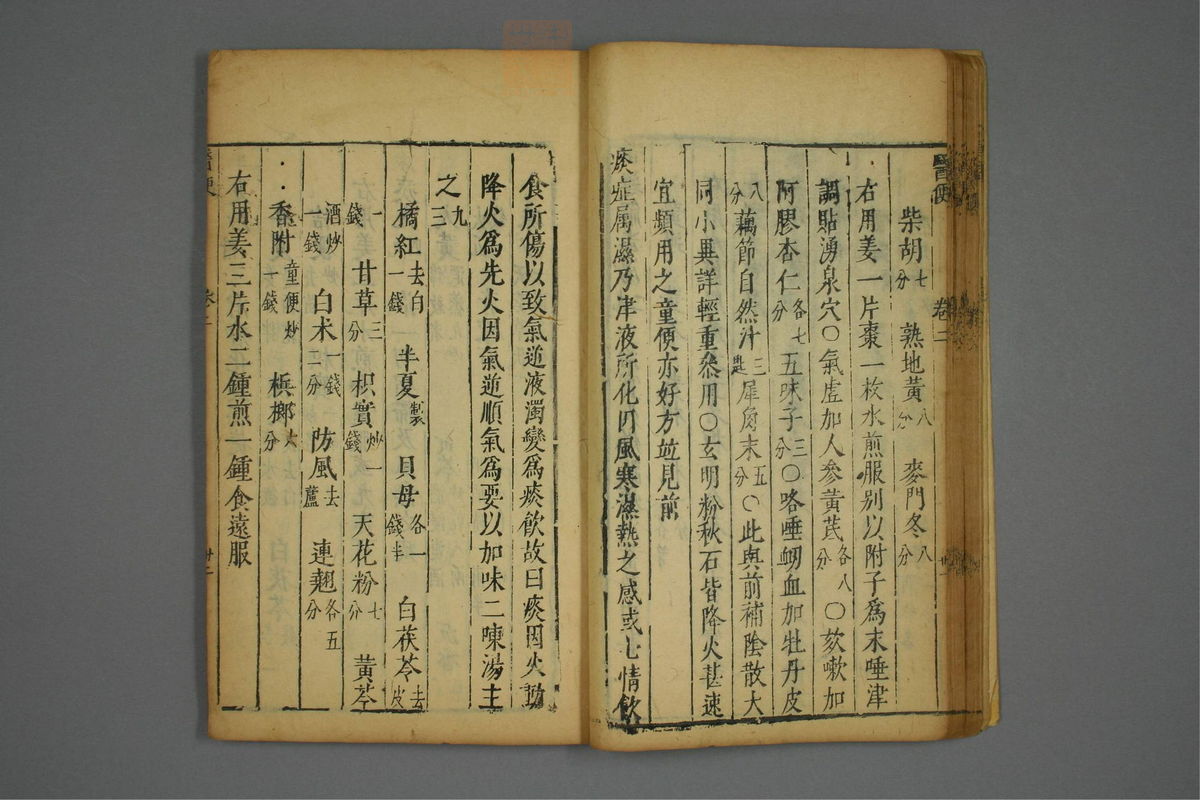 醫便 卷二
柴胡七分 熟地黃八分 麥門冬八分
右用姜一片棗一枚水煎服别以附子爲末唾津
調貼湧泉穴○氣虚加人參黃芪各八分○欬嗽加
阿膠杏仁各七分五味子三分○咯唾衂血加牡丹皮
八分藕節自然汁三匙犀角末五分○此與前補陰散大
同小異詳輕重叅用○玄明粉秋石皆降火甚速
宜頻用之童便亦好方並見前
痰症属濕乃津液所化因風寒濕熱之感或七情飲
食所傷以致氣逆液濁變爲痰飲故曰痰因火動
降火爲先火因氣逆順氣爲要以加味二陳湯主
之九三
橘紅去白一錢 半夏製 貝母各一錢半 白茯苓去皮
一錢 甘草三分 枳實炒一錢 天花粉七分 黃芩
酒炒一錢 白术一錢二分 防風去蘆 連翹各五分
香附童便炒一錢 檳榔六分
右用姜三片水二鍾煎一鍾食遠服